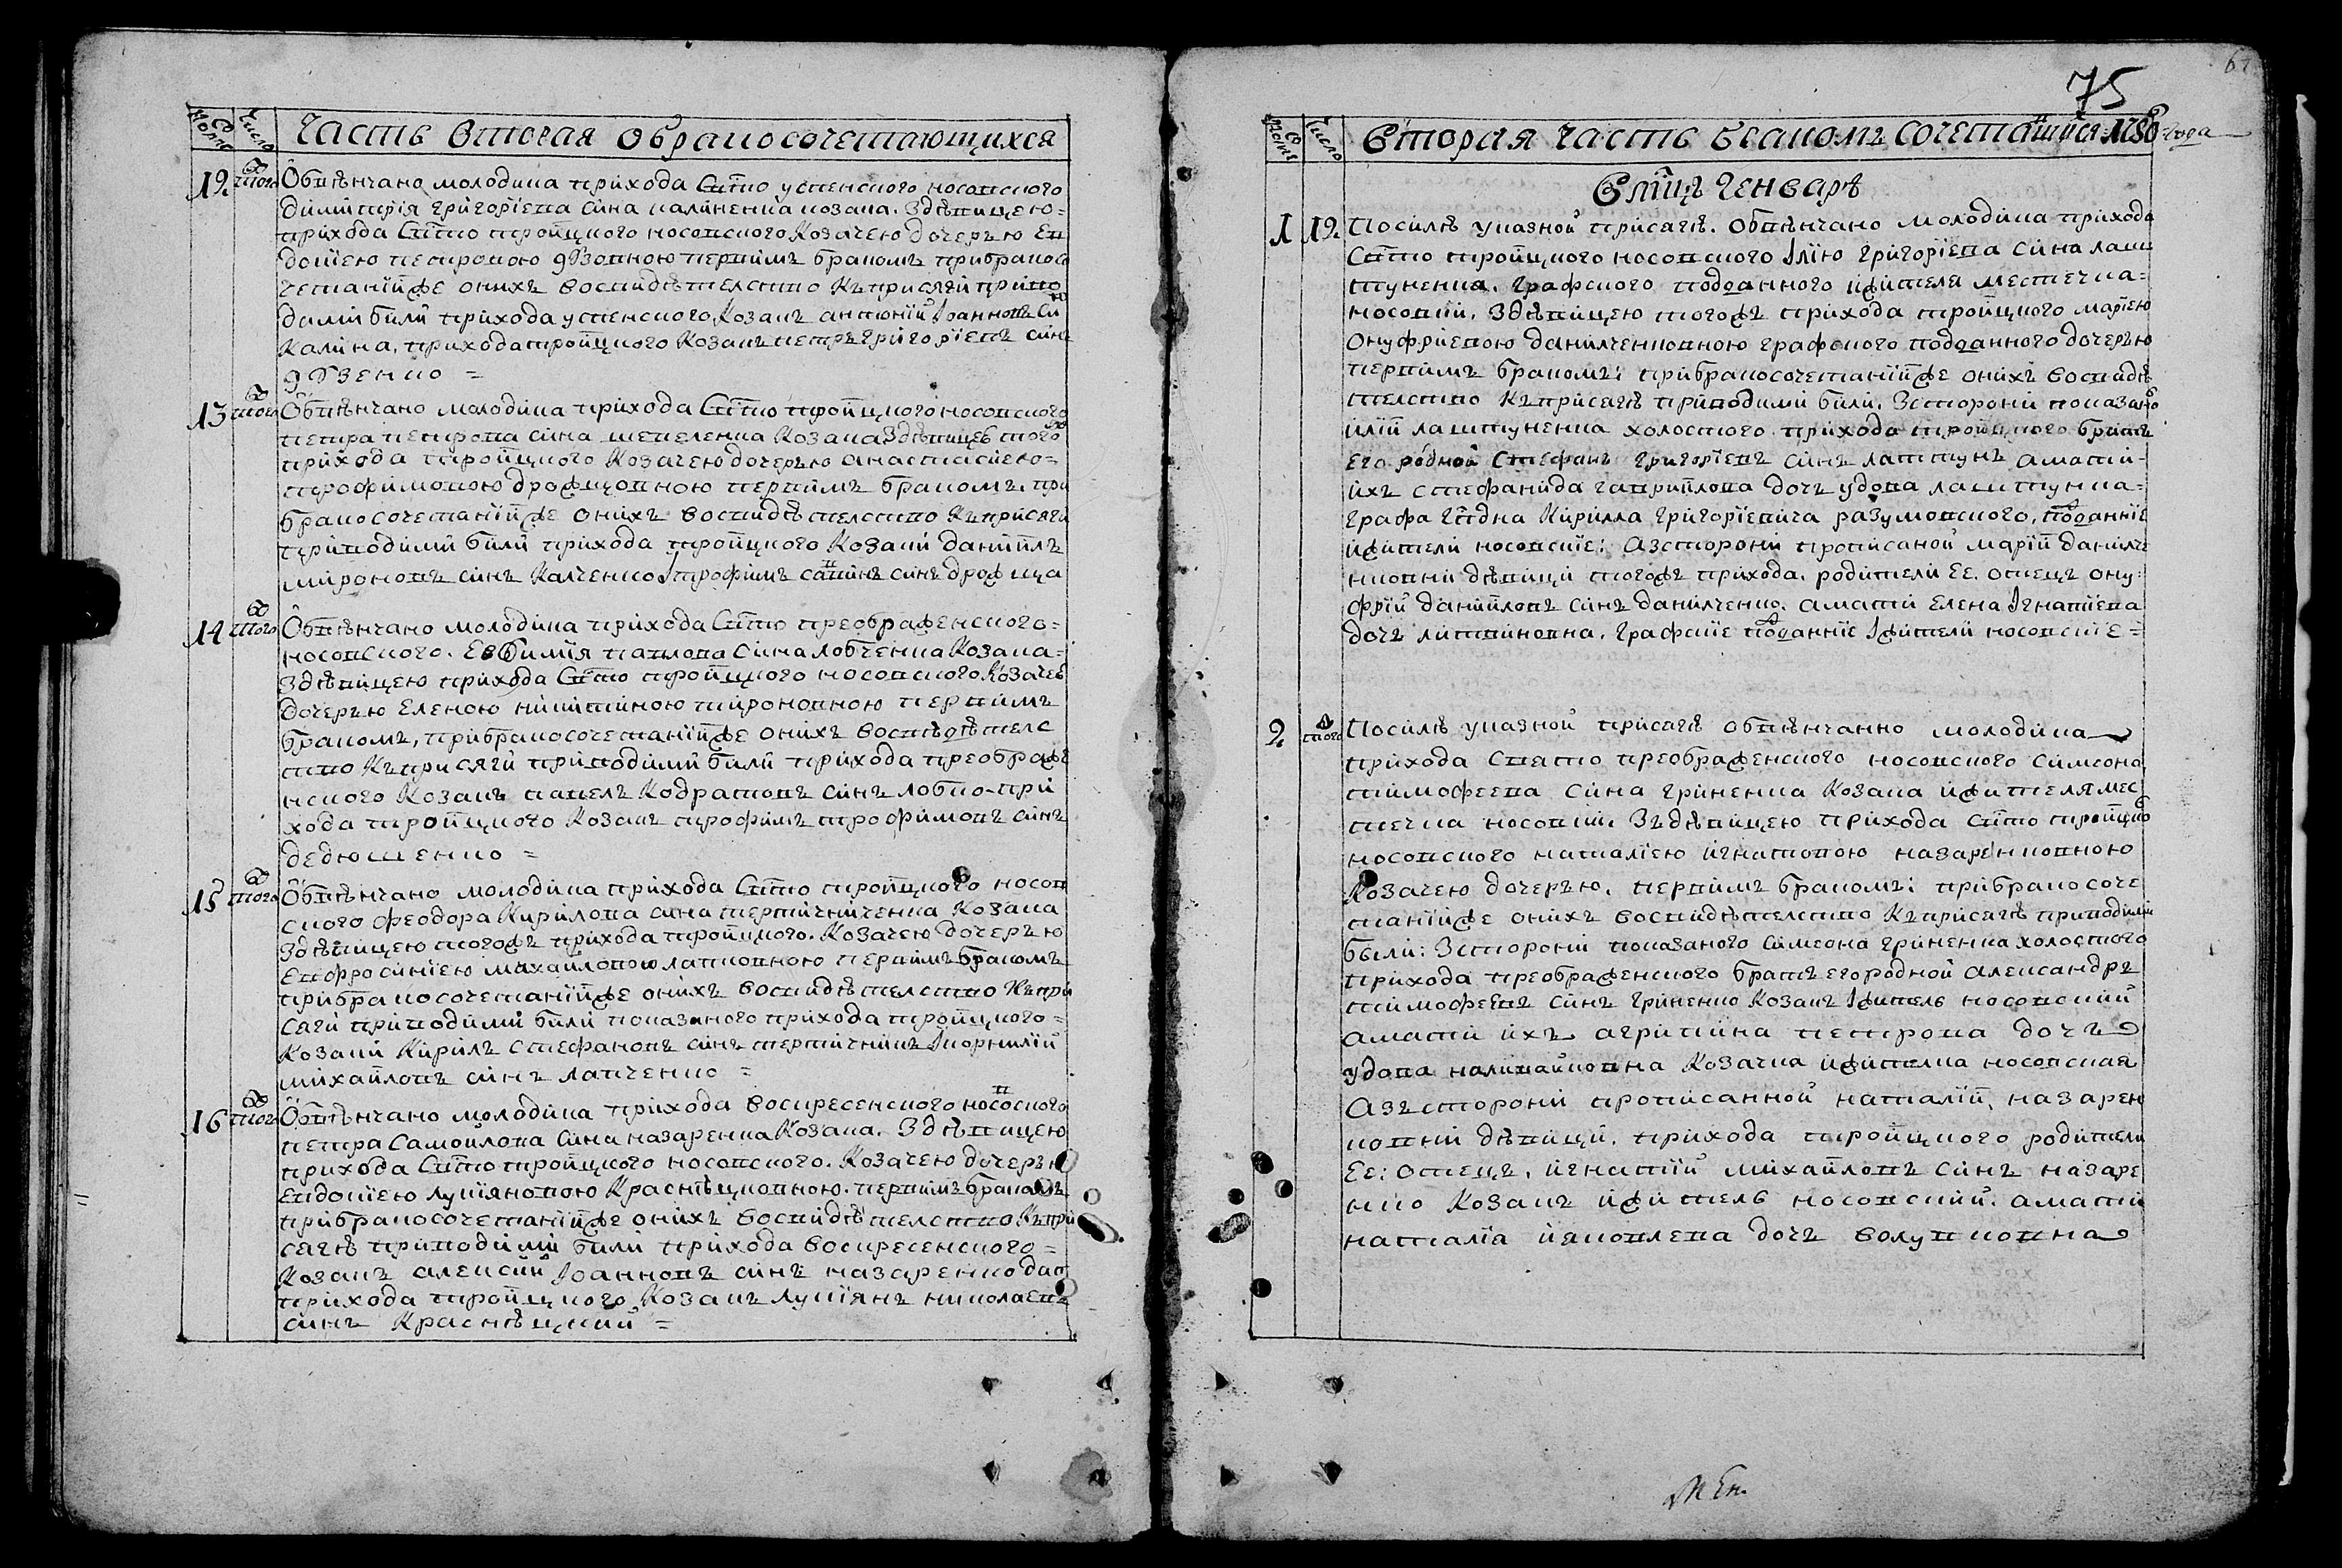 Часть вторая о бракосочетающихся
12 того Обвѣнчано молодика прихода Свто успенского носовского
димитрія григоріева сина калиненка козака. Здѣвицею
прихода Свто тройцкого носовского Козачею дочерью Ев
докіею петровою
первимъ бракомъ прибракосо
четаніи же онихъ восвидѣтелство Къ присяги приво
димй билй прихода успенского Козакъ антоній Іоанновъ си
Калина, прихода тройцкого Козакъ петръ григоріевъ синъ
13 того Обвѣнчано молодика прихода Свто тройцкого носовского
петра петрова сина шепеленка Козака Здѣвицею того
прихода тройцкого Козачею дочерью анастасиею
трофимовою дрожцовною первимъ бракомъ. при
бракосочетаніи же онихъ восвидѣтелство Къ присяги
приводимй билй прихода тройцкого Козакй данійлъ
мироновъ синъ Калченко Ітрофимъ савинъ синъ дрожца
14 того Обвѣнчано молодика прихода Свто преображенского
носовского. Евѳимія павлова сина лобченка Козака
Здѣвицею прихода Свто тройцкого носовского Козачею
дочерью Еленою никитиною миро­новною первимъ
бракомъ, прибракосочетаніи же онихъ восвѣдѣтелс
тво Къ присягй приводимй билй прихода преображе
нского Козакъ павелъ Кодратовъ синъ лобко при
хода тройцкого Козакъ трофимъ трофимовъ синъ
дедюшенко =
15 того Обвѣнчано молодика прихода Свто тройцкого носов
ского феодора Кирилова сина Козака
Здѣвицею тогожъ прихода тройцкого. Козачею дочерью
Евфросиніею михайловою лапковною первимъ бракомъ
прибракосочетаніи же онихъ восвидѣтелство Къ при
сягй приводимй билй показаного прихода тройцкого
Козакй Кирилъ стефановъ синъ Ікорнилій
михайловъ синъ лапченко =
16 того Обвѣнчано молодика прихода воскресенского носовского
петра Самойлова сина назаренка Козака. Здѣвицею
прихода Свто тройцкого носовского. Козачею дочерью
Евдокіею лукіяновою Краснѣцковною. первимъ бракомъ
прибракосочетаніи же онихъ восвидѣтелство Къ при
сягѣ приводимй билй прихода воскресенского
Козакъ алексий Іоанновъ синъ назаренко дао
прихода тройцкого Козакъ лукіянъ николаевъ
синъ Краснѣцкий =
75
Вторая часть бракомъ сочетавшихся 1780 года
Вмцѣ генварѣ
1 12 Посилѣ указной присягѣ. Обвѣнчано молодика прихода
Свто тройцкого носовского Ілію григоріева сина лаш
туненка. графского подданного жителя местечка
носовки. Здѣвицею тогожъ прихода тройцкого маріею
Онуфріевою данилченковною графского подданного дочерью
первимъ бракомъ: прибракосочетаніи же онихъ восвидѣ
телство Къ присягѣ приводими били. Зсторони показано
илій лаштуненка холостого прихода тройцкого братъ
Его родной Стефанъ григоріевъ синъ лаштунъ аматй
ихъ стефанида гаврийлова дочъ удова лаштунка
графа Кирилла григоріевича разумовского, подданніе
жителй носовскіе: Азсторони прописаной маріи данилче
нковни дѣвици тогожъ прихода. родители Ее. отецъ ону
фрій данийловъ синъ данилченко. аматй Елена Ігнатіева
дочъ литвиновна. графскіе подданніе Ижителй носовскіе =
2 того Посилѣ указной присягѣ обвѣнчанно молодика
прихода Спасто преображенского носовского симеона
тимофеева сина гриненка Козака жителя мес
течка носовки. Зъдѣвицею прихода свто тройцко
носовского наталіею игнатовою назаренковною
Козачею дочерью. первимъ бракомъ: прибракосоче
таніи же онихъ восвидѣтелство Къ присягѣ приводими
были: Зсторони показаного симеона гриненка холостого
прихода преображенского братъ его родной александръ
тимофеевъ синъ гриненко Козакъ Ижитель носовский
аматй ихъ агрипина петрова дочъ
удова калинайковна Козачка жителка носовская
Азъсторони прописанной наталіи, назарен
ковни дѣвици. прихода тройцкого родители
Ее: Отецъ, игнатій михайловъ синъ назаре
нко Козакъ житель носовский. аматй
наталіа иаковлева дочъ